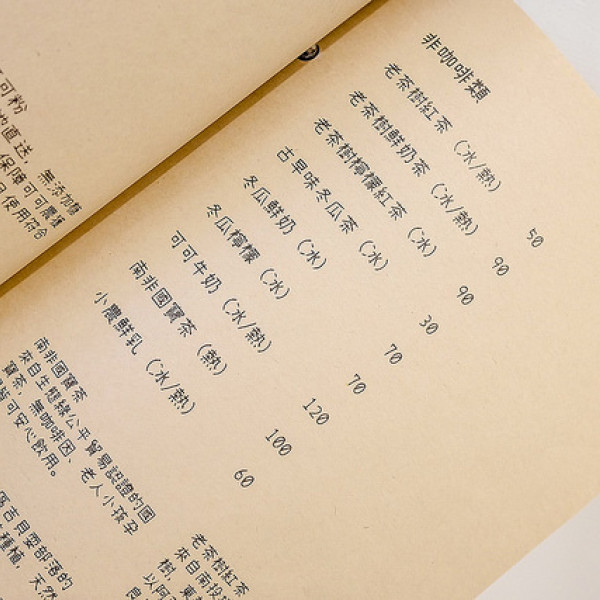 非咖啡類
老茶樹紅茶（冰/熱） 50
老茶樹鮮奶茶（冰/熱） 90
老茶樹檸檬紅茶（冰） 90
古早味冬瓜茶（冰） 30
冬瓜鮮奶（冰） 70
冬瓜檸檬（冰） 70
可可牛奶（冰/熱） 120
南非國寶茶（熱） 100
小農鮮乳（冰/熱） 60
可粉
直送，無添加糖
保障可可農
使用符合
南非國寶茶
來自生態綠公平貿易認證的國
寶茶，無咖啡因、老人小孩孕
可安心飲用。
吉貝耍部落的
種植，天然
老茶樹紅茶
來自南投
樹，東
以阿
良